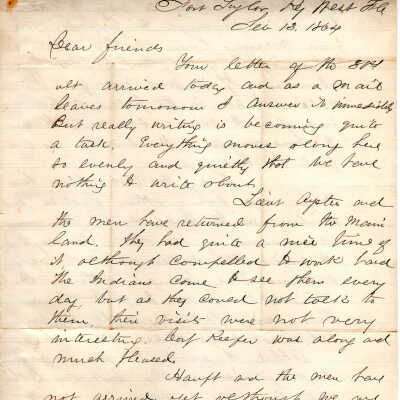 Fort Taylor, Key West Fla
Feb 13, 1864
Dear friends
Your letter of the
ult arrived today and as a mail
leaves tomorrow I answer it immediately
But really writing is becoming quite
a task. Everything moves along here
so evenly and quietly that we have
nothing to write about.
Lieut and
the men have returned from the Main
land. They had quite a nice time of
it, although compelled to work hard
The Indians come to see them every
day, but as they could not talk to
them, their visits were not very
interesting. Keefer was along and
much pleased.
Haupt and the men have
not arrived yet although we are